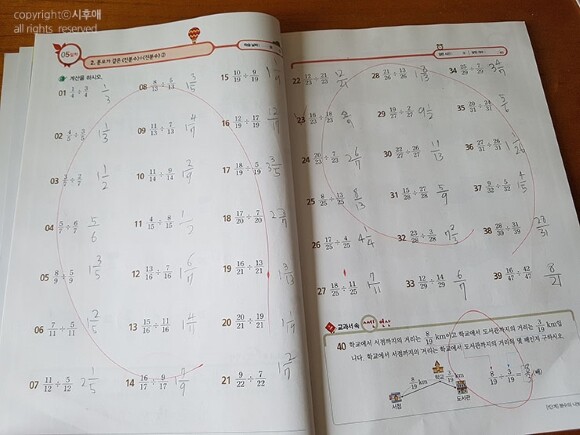 copyright©시후애
all rights reserved
05일차
2. 분모가 같은 (진분수)÷(진분수) ②
계산을 하시오.
01 1/4 ÷ 3/4 1/3
02 4/5 ÷ 3/5 1 1/3
04 5/7 ÷ 6/7 5/6
05 8/9 ÷ 5/9 1 3/5
06 7/11 ÷ 5/11 1 2/5
07 11/12 ÷ 5/12 2 1/5
08 8/13 ÷ 5/13 1 3/5
09 11/13 ÷ 7/13 1 4/7
10 11/14 ÷ 9/14
11 4/15 ÷ 8/15 1/2
12 13/16 ÷ 7/16 1 6/7
13 15/16 ÷ 11/16 1 4/11
14 16/17 ÷ 9/17 1 7/9
15 10/19 ÷ 9/19
16 12/19 ÷ 17/19 12/17
17 18/19 ÷ 5/19 3 3/5
18 17/20 ÷ 7/20 2 3/7
19 16/21 ÷ 13/21 1 3/13
20 20/21 ÷ 19/21
21 9/22 ÷ 7/22 1 2/7
22 12/23 ÷ 21/23 12/21
23 16/23 ÷ 18/23
24 20/23 ÷ 7/23 2 6/7
25 8/25 ÷ 13/25 8/13
26 17/25 ÷ 4/25 4 1/4
27 18/25 ÷ 11/25
28 21/26 ÷ 13/26
29 19/27 ÷ 2/27 9 1/2
30 22/27 ÷ 26/27 11/13
31 15/28 ÷ 27/28 5/9
32 23/28 ÷ 3/28 7 2/3
33 12/29 ÷ 14/29 6/7
34 25/29 ÷ 7/29 3 4/7
35 20/31 ÷ 24/31 5/6
36 27/31 ÷ 26/31
37 8/32 ÷ 5/32
38 28/33 ÷ 31/33
39 16/47 ÷ 42/47 8/21
교과서 속
40 학교에서 서점까지의 거리는 8/19 km이고 학교에서 도서관까지의 거리는 3/19 km입
니다. 학교에서 서점까지의 거리는 학교에서 도서관까지의 거리의 몇 배인지 구하시오.
8/19 km 학교 3/19 km
서점 도서관
8/19 ÷ 3/19 = (배)